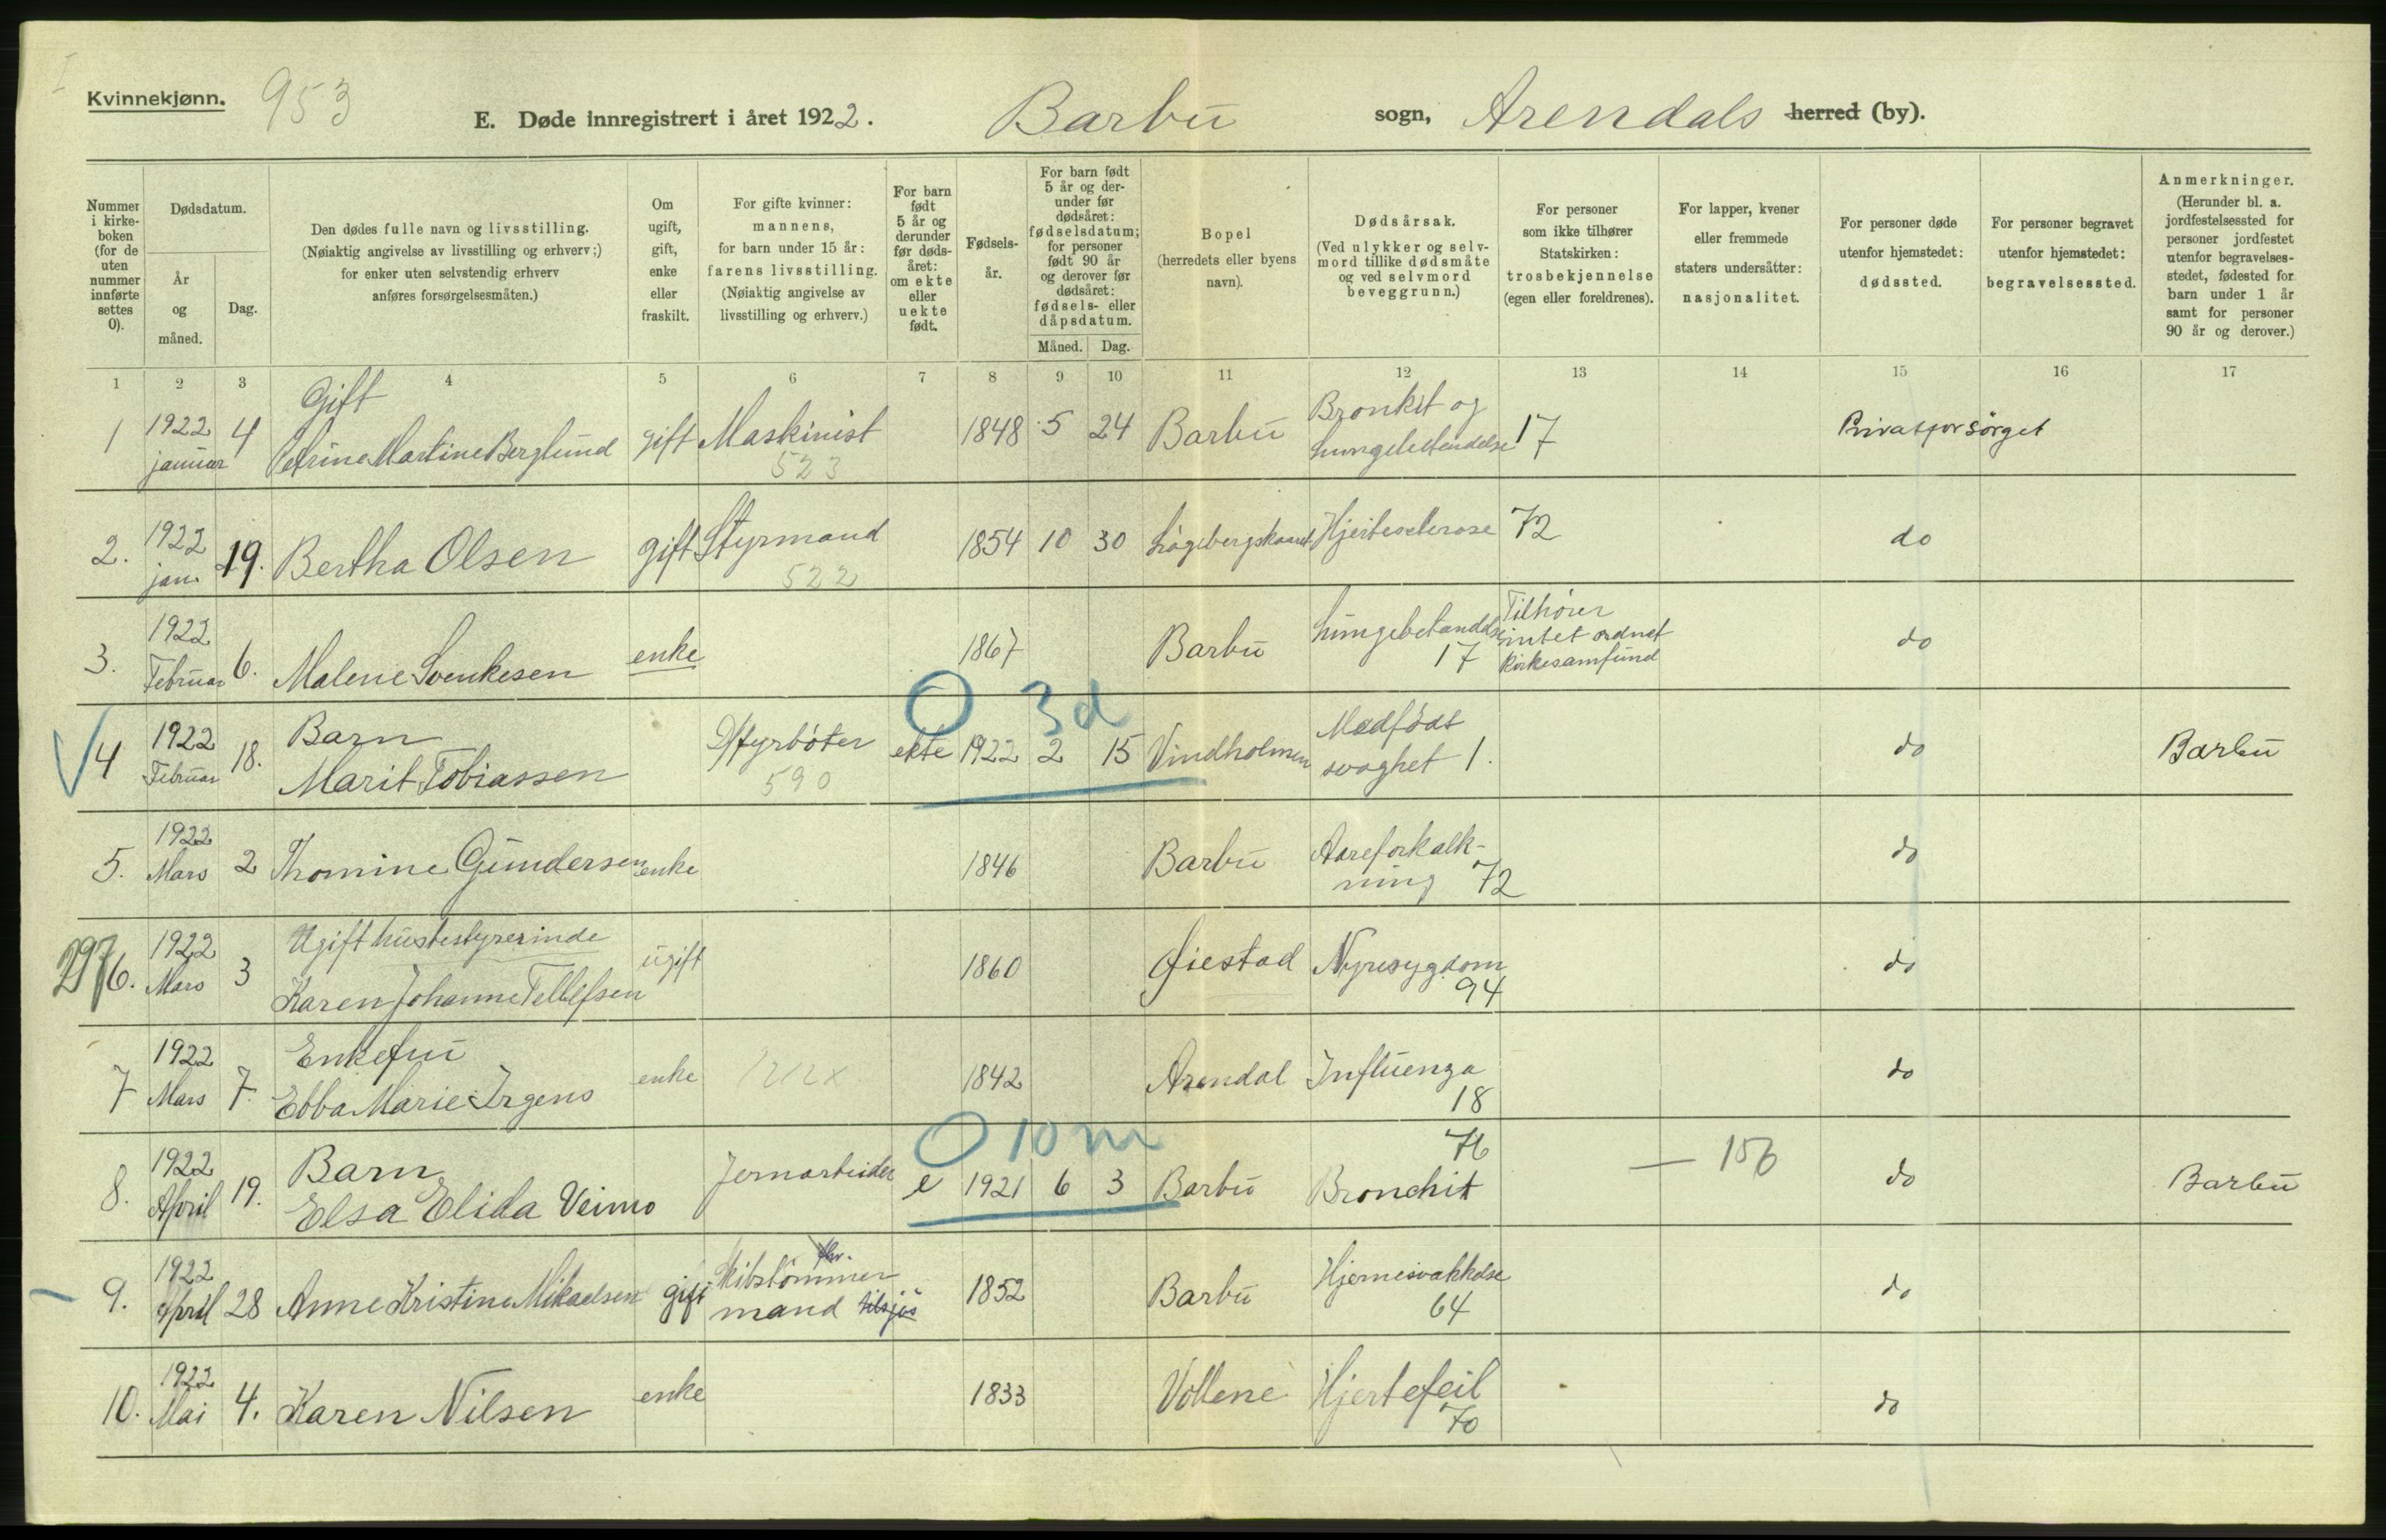 Kvinnekjønn. 953
E. Døde innregistrert i året 1922. Barbu sogn, Arendals herred (by).
Nummer i kirkeboken (for de uten nummer innførte settes 0).
Dødsdatum.
År og måned.
Dag.
Den dødes fulle navn og livsstilling.
(Nøiaktig angivelse av livsstilling og erhverv;)
for enker uten selvstendig erhverv
anføres forsørgelsesmåten.)
Om ugift, gift, enke eller fraskilt.
For gifte kvinner: mannens, for barn under 15 år: farens livsstilling. (Nøiaktig angivelse av livsstilling og erhverv.)
For barn født 5 år og derunder før dødsåret: om ekte eller uekte født.
Fødselsår.
For barn født 5 år og derunder før dødsåret: fødselsdatum; for personer født 90 år og derover før dødsåret: fødsels- eller dåpsdatum.
Måned. Dag.
Bopel (herredets eller byens navn).
Dødsårsak. (Ved ulykker og selvmord tillike dødsmåte og ved selvmord beveggrunn.)
For personer som ikke tilhører Statskirken: trosbekjennelse (egen eller foreldrenes).
For lapper, kvener eller fremmede staters undersåtter: nasjonalitet.
For personer døde utenfor hjemstedet: dødssted.
For personer begravet utenfor hjemstedet: begravelsessted.
Anmerkninger. (Herunder bl. a. jordfestelsessted for personer jordfestet utenfor begravelsesstedet, fødested for barn under 1 år samt for personer 90 år og derover.)
1 2 3 4 5 6 7 8 9 10 11 12 13 14 15 16 17
1 1922 januar 4 Gift Petrine Martine Berglund gift Maskinist 523 1848 5 24 Barbu Bronkit og lungebetendelse 17 Privatforsørget
2. 1922 jan. 19. Bertha Olsen gift Styrmand 522 1854 10 30 Hjertesclerose 72 do
3. 1922 Februar 6. Malene Svenkesen enke 1867 Barbu Lungebetændelse 17 Tilhører intet ordnet kirkesamfund do
O 3d
4 1922 Februar 18. Barn Marit Tobiassen Fyrbøter 590 ekte 1922 2 15 Vindholmen Medfødt svaghet 1. do Barbu
5. 1922 Mars 2 Thomine Gundersen enke 1846 Barbu Aareforkalkning 72 do
297 6. 1922 Mars 3 Ugift husbestyrerinde Karen Johanne Tellefsen ugift 1860 Øiestad Nyresygdom 94 do
7 1922 Mars 7. Enkefru Ebba Marie Irgens enke 1842 Arendal Influenza 18 do
O 10 m
8. 1922 April 19. Barn Elsa Elida Veimo Jernarbeider e 1921 6 3 Barbu 76 Bronchit — 156 do Barbu
9. 1922 April 28 Anne Kristine Mikaelsen gift Skibstømmermand tilsjøs 1852 Barbu Hjernesvækkelse 64 do
10. 1922 Mai 4. Karen Nilsen enke 1833 Vollene Hjertefeil 70 do